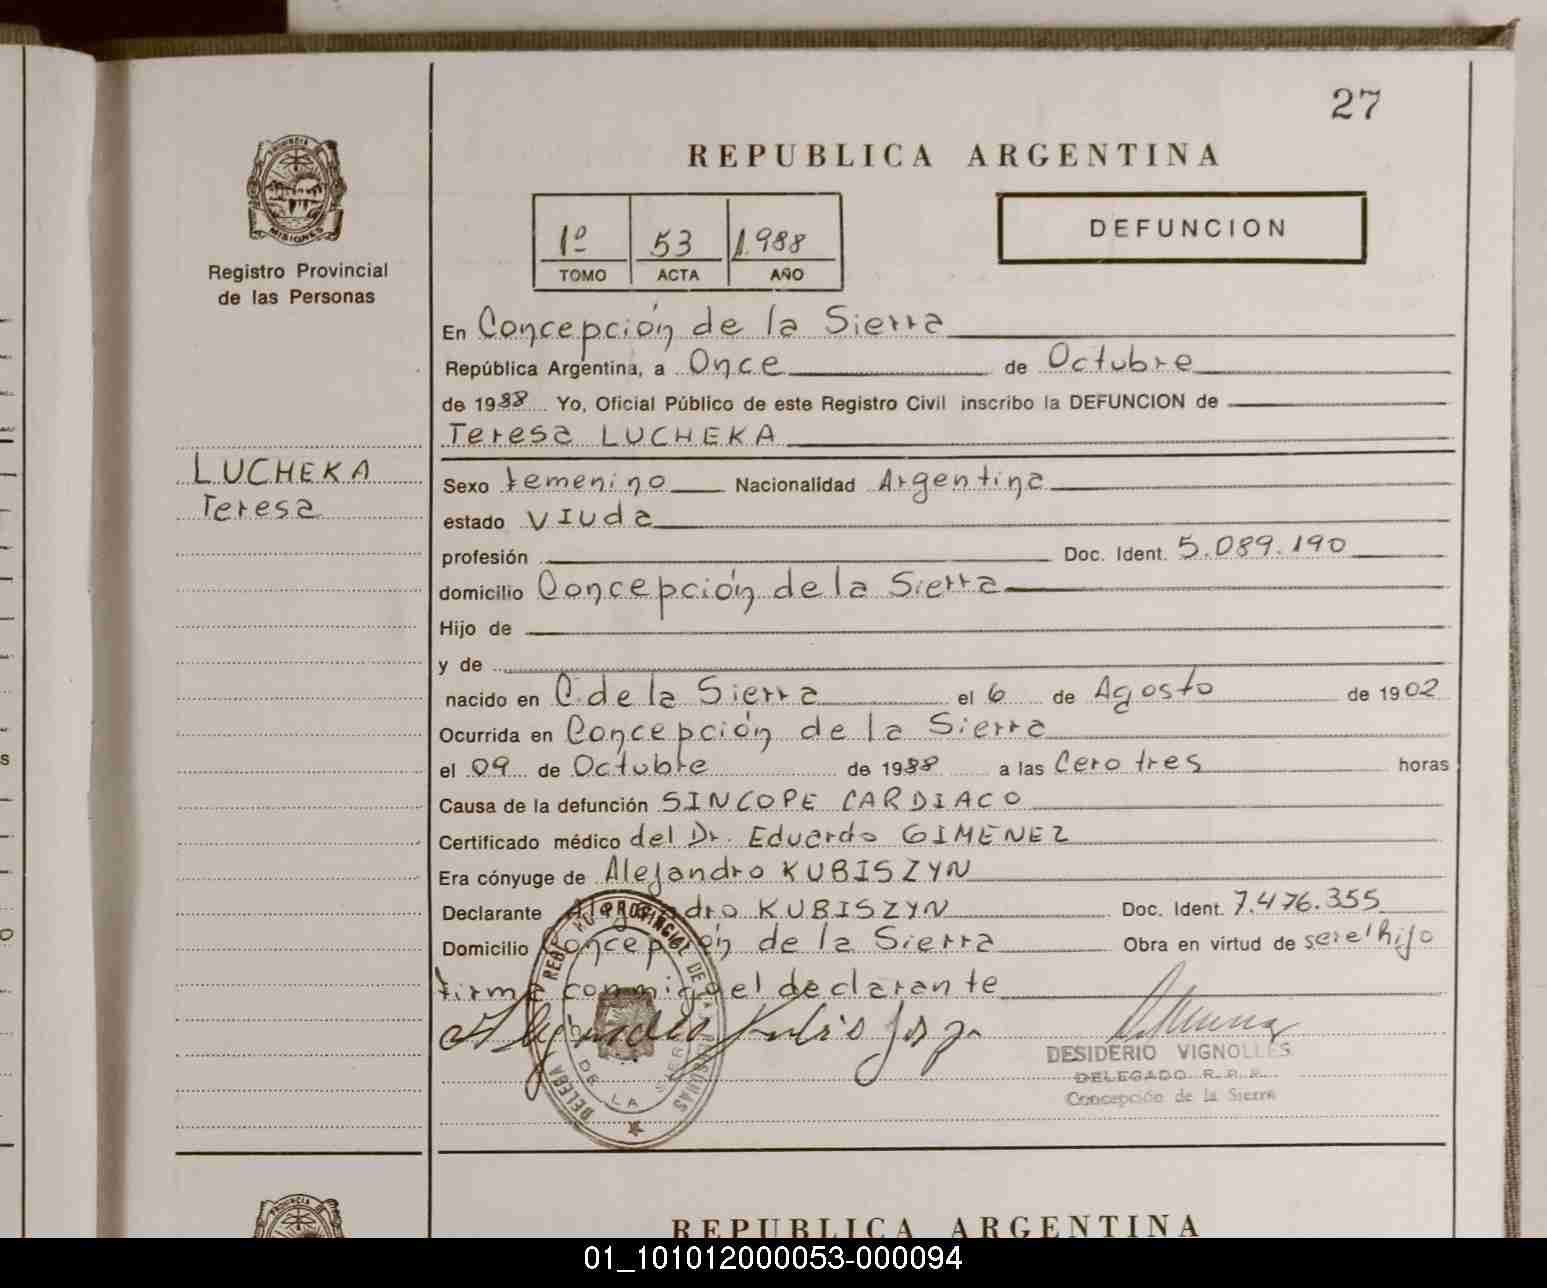 27
REPUBLICA ARGENTINA
PROVINCIA
MISIONES
Registro Provincial
de las Personas
1º 53 1.988
TOMO ACTA AÑO
DEFUNCION
En Concepción de la Sierra
República Argentina, a Once de Octubre
de 1988 Yo, Oficial Público de este Registro Civil inscribo la DEFUNCION de
Teresa LUCHEKA
LUCHEKA
Teresa
Sexo femenino Nacionalidad Argentina
estado VIUda
profesión Doc. Ident. 5.089.190
domicilio Concepción de la Sierra
Hijo de
y de
nacido en C. de la Sierra el 6 de Agosto de 1902
Ocurrida en Concepción de la Sierra
el 09 de Octubre de 1988 a las Cero tres horas
Causa de la defunción SINCOPE CARDIACO
Certificado médico del Dr. Eduardo GIMENEZ
Era cónyuge de Alejandro KUBISZYN
Declarante Alejandro KUBISZYN Doc. Ident. 7.476.355
Domicilio Concepción de la Sierra Obra en virtud de ser el hijo
firma conmigo el declarante
DESIDERIO VIGNOLLES
DELEGADO R.P.P.
Concepción de la Sierra
PROVINCIA
REPUBLICA ARGENTINA
01_101012000053-000094